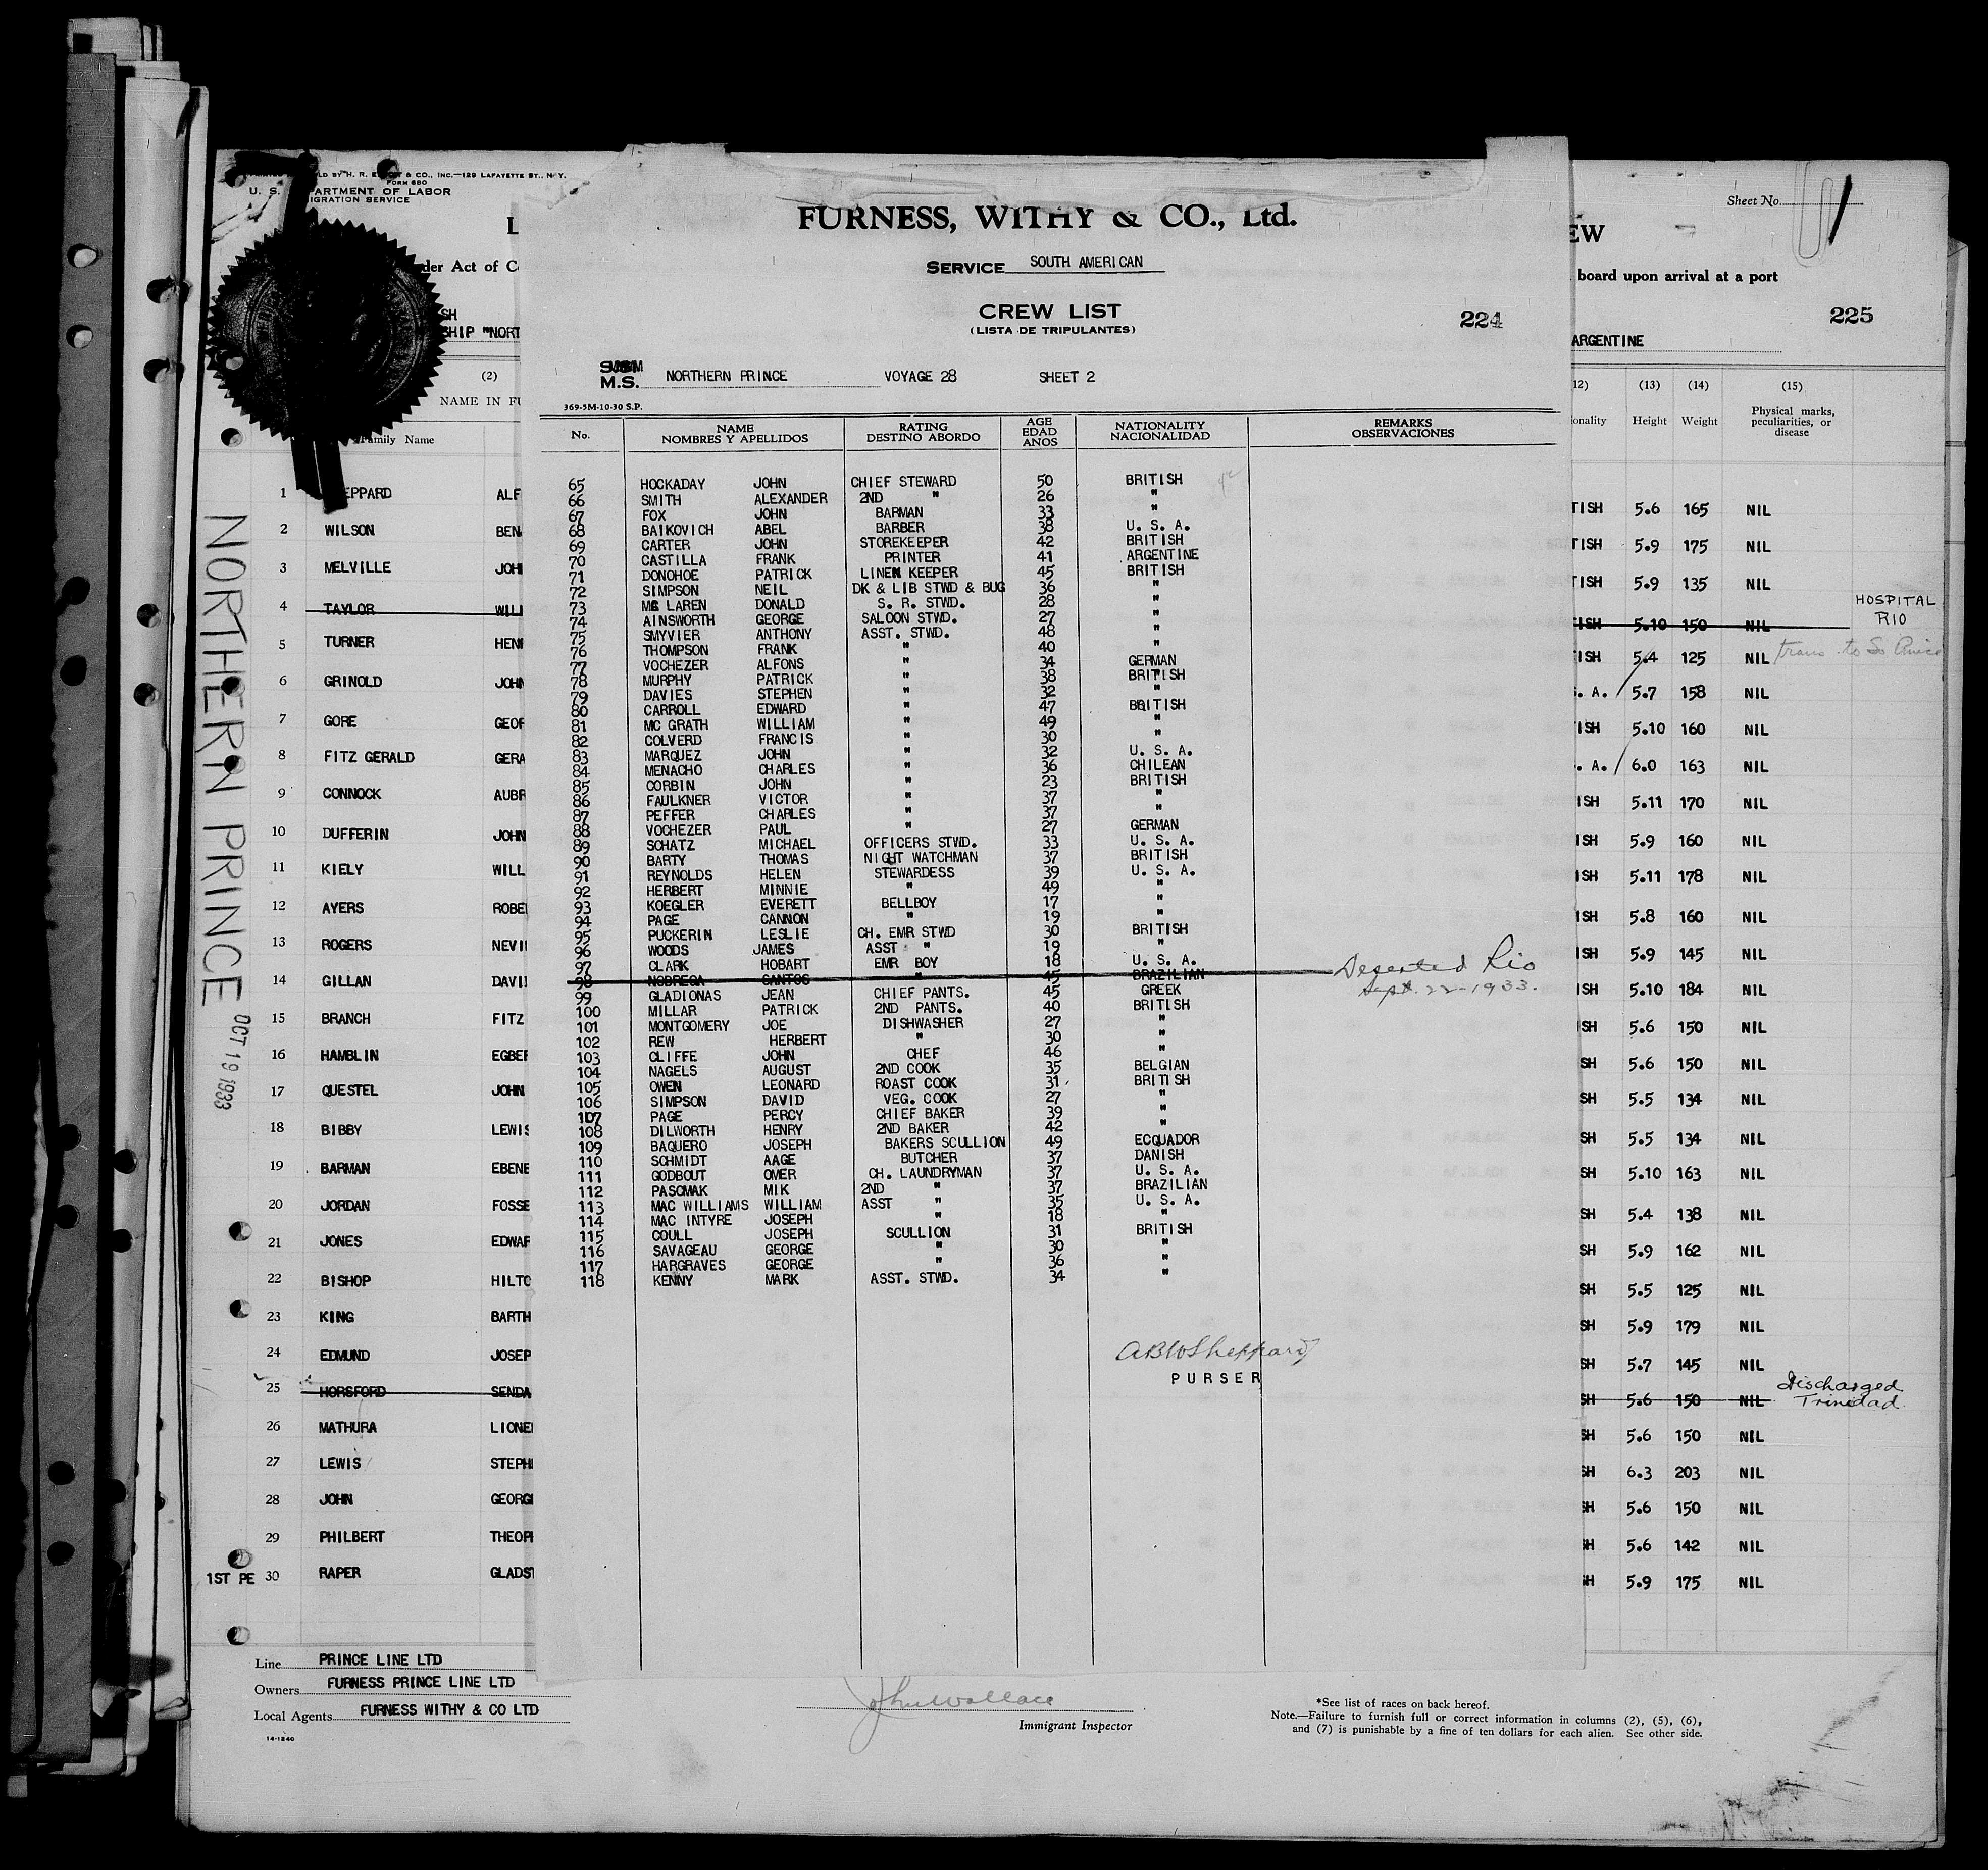 FURNESS, WITHY & CO., Ltd.
SERVICE SOUTH AMERICAN
CREW LIST
(LISTA DE TRIPULANTES)
224
M.S. NORTHERN PRINCE VOYAGE 28 SHEET 2
369-5M-10-30 S.P.
No. NAME RATING AGE NATIONALITY REMARKS
NOMBRES Y APELLIDOS DESTINO ABORDO EDAD ANOS NACIONALIDAD OBSERVACIONES
65 HOCKADAY JOHN CHIEF STEWARD 50 BRITISH
66 SMITH ALEXANDER 2ND " 26 "
67 FOX JOHN BARMAN 33 "
68 BAIKOVICH ABEL BARBER 38 U. S. A.
69 CARTER JOHN STOREKEEPER 42 BRITISH
70 CASTILLA FRANK PRINTER 41 ARGENTINE
71 DONOHOE PATRICK LINEN KEEPER 45 BRITISH
72 SIMPSON NEIL DK & LIB STWD & BUG 36 "
73 MC LAREN DONALD S. R. STWD. 28 "
74 AINSWORTH GEORGE SALOON STWD. 27 "
75 SMYVIER ANTHONY ASST. STWD. 48 "
76 THOMPSON FRANK " 40 "
77 VOCHEZER ALFONS " 34 GERMAN
78 MURPHY PATRICK " 38 BRITISH
79 DAVIES STEPHEN " 32 "
80 CARROLL EDWARD " 47 BRITISH
81 MC GRATH WILLIAM " 49 "
82 COLVERD FRANCIS " 30 "
83 MARQUEZ JOHN " 32 U. S. A.
84 MENACHO CHARLES " 36 CHILEAN
85 CORBIN JOHN " 23 BRITISH
86 FAULKNER VICTOR " 37 "
87 PEFFER CHARLES " 37 "
88 VOCHEZER PAUL " 27 GERMAN
89 SCHATZ MICHAEL OFFICERS STWD. 33 U. S. A.
90 BARTY THOMAS NIGHT WATCHMAN 37 BRITISH
91 REYNOLDS HELEN STEWARDESS 39 U. S. A.
92 HERBERT MINNIE " 49 "
93 KOEGLER EVERETT BELLBOY 17 "
94 PAGE CANNON " 19 "
95 PUCKERIN LESLIE CH. EMR STWD 30 BRITISH
96 WOODS JAMES ASST " 19 "
97 CLARK HOBART EMR BOY 18 U. S. A.
98 NOBREGA SANTOS " 45 BRAZILIAN Deserted Rio
Sept. 22-1933.
99 GLADIONAS JEAN CHIEF PANTS. 45 GREEK
100 MILLAR PATRICK 2ND PANTS. 40 BRITISH
101 MONTGOMERY JOE DISHWASHER 27 "
102 REW HERBERT " 30 "
103 CLIFFE JOHN CHEF 46 "
104 NAGELS AUGUST 2ND COOK 35 BELGIAN
105 OWEN LEONARD ROAST COOK 31 BRITISH
106 SIMPSON DAVID VEG. COOK 27 "
107 PAGE PERCY CHIEF BAKER 39 "
108 DILWORTH HENRY 2ND BAKER 42 "
109 BAQUERO JOSEPH BAKERS SCULLION 49 ECQUADOR
110 SCHMIDT AAGE BUTCHER 37 DANISH
111 GODBOUT OMER CH. LAUNDRYMAN 37 U. S. A.
112 PASCMAK MIK 2ND " 37 BRAZILIAN
113 MAC WILLIAMS WILLIAM ASST " 35 U. S. A.
114 MAC INTYRE JOSEPH 18 "
115 COULL JOSEPH SCULLION 31 BRITISH
116 SAVAGEAU GEORGE " 30 "
117 HARGRAVES GEORGE " 36 "
118 KENNY MARK ASST. STWD. 34 "
ABWSheppard
PURSER
H. R. & CO., INC.—129 LAFAYETTE ST., N.Y.
FORM 680
U. S. DEPARTMENT OF LABOR
IGRATION SERVICE
der Act of
SHIP "NORT
(2)
NAME IN FU
Family Name
NORTHERN PRINCE OCT 19 1933
Sheet No. 1
EW
board upon arrival at a port
225
ARGENTINE
12) (13) (14) (15)
ionality Height Weight Physical marks, peculiarities, or disease
1 EPPARD ALF TISH 5.6 165 NIL
2 WILSON BEN TISH 5.9 175 NIL
3 MELVILLE JOH TISH 5.9 135 NIL
4 TAYLOR WILL ISH 5.10 150 NIL HOSPITAL RIO
5 TURNER HEN ISH 5.4 125 NIL trans. to So
6 GRINOLD JOHN S. A. 5.7 158 NIL
7 GORE GEOR ISH 5.10 160 NIL
8 FITZ GERALD GERA . A. 6.0 163 NIL
9 CONNOCK AUBR ISH 5.11 170 NIL
10 DUFFERIN JOHN ISH 5.9 160 NIL
11 KIELY WILL ISH 5.11 178 NIL
12 AYERS ROBE ISH 5.8 160 NIL
13 ROGERS NEVI ISH 5.9 145 NIL
14 GILLAN DAVI ISH 5.10 184 NIL
15 BRANCH FITZ SH 5.6 150 NIL
16 HAMBLIN EGBE SH 5.6 150 NIL
17 QUESTEL JOHN SH 5.5 134 NIL
18 BIBBY LEWIS SH 5.5 134 NIL
19 BARMAN EBENE SH 5.10 163 NIL
20 JORDAN FOSSE SH 5.4 138 NIL
21 JONES EDWAR SH 5.9 162 NIL
22 BISHOP HILTO SH 5.5 125 NIL
23 KING BARTH SH 5.9 179 NIL
24 EDMUND JOSEP SH 5.7 145 NIL
25 HORSFORD SENDA SH 5.6 150 NIL Discharged Trinidad.
26 MATHURA LIONE SH 5.6 150 NIL
27 LEWIS STEPH SH 6.3 203 NIL
28 JOHN GEORG SH 5.6 150 NIL
29 PHILBERT THEOP H 5.6 142 NIL
1ST PE 30 RAPER GLADST H 5.9 175 NIL
Line PRINCE LINE LTD
Owners FURNESS PRINCE LINE LTD
Local Agents FURNESS WITHY & CO LTD
14-1240
John Wallace
Immigrant Inspector
*See list of races on back hereof.
Note.—Failure to furnish full or correct information in columns (2), (5), (6),
and (7) is punishable by a fine of ten dollars for each alien. See other side.